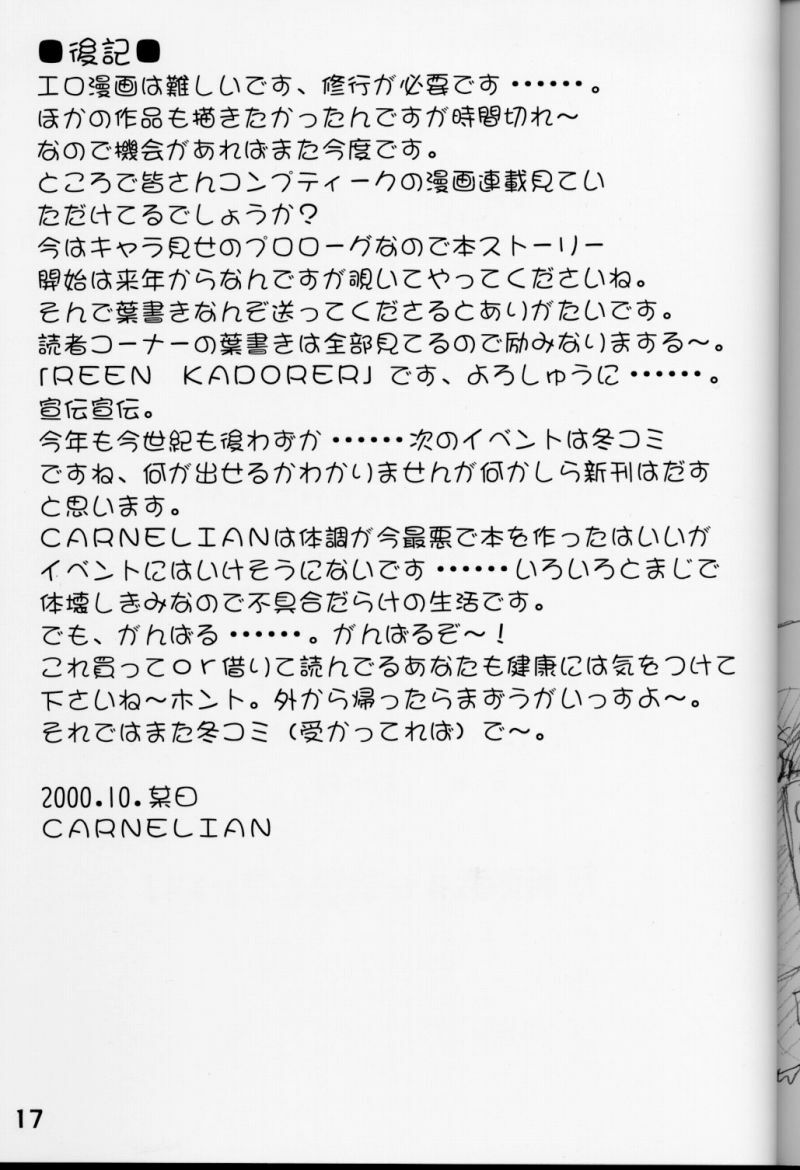 ■後記■
エロ漫画は難しいです、修行が必要です・・・・・・。
ほかの作品も描きたかったんですが時間切れ～
なので機会があればまた今度です。
ところで皆さんコンプティークの漫画連載見てい
ただけてるでしょうか？
今はキャラ見せのプロローグなので本ストーリー
開始は来年からなんですが覗いてやってくださいね。
そんで葉書きなんぞ送ってくださるとありがたいです。
読者コーナーの葉書きは全部見てるので励みなりまする～。
「ＲＥＥＮ　ＫＡＤＯＲＥＲ」です、よろしゅうに・・・・・・。
宣伝宣伝。
今年も今世紀も後わずか・・・・・・次のイベントは冬コミ
ですね、何が出せるかわかりませんが何かしら新刊はだす
と思います。
ＣＡＲＮＥＬＩＡＮは体調が今最悪で本を作ったはいいが
イベントにはいけそうにないです・・・・・・いろいろとまじで
体壊しぎみなので不具合だらけの生活です。
でも、がんばる・・・・・・。がんばるぞ～！
これ買ってｏｒ借りて読んでるあなたも健康には気をつけて
下さいね～ホント。外から帰ったらまずうがいっすよ～。
それではまた冬コミ（受かってれば）で～。
2000.10.某日
ＣＡＲＮＥＬＩＡＮ
17